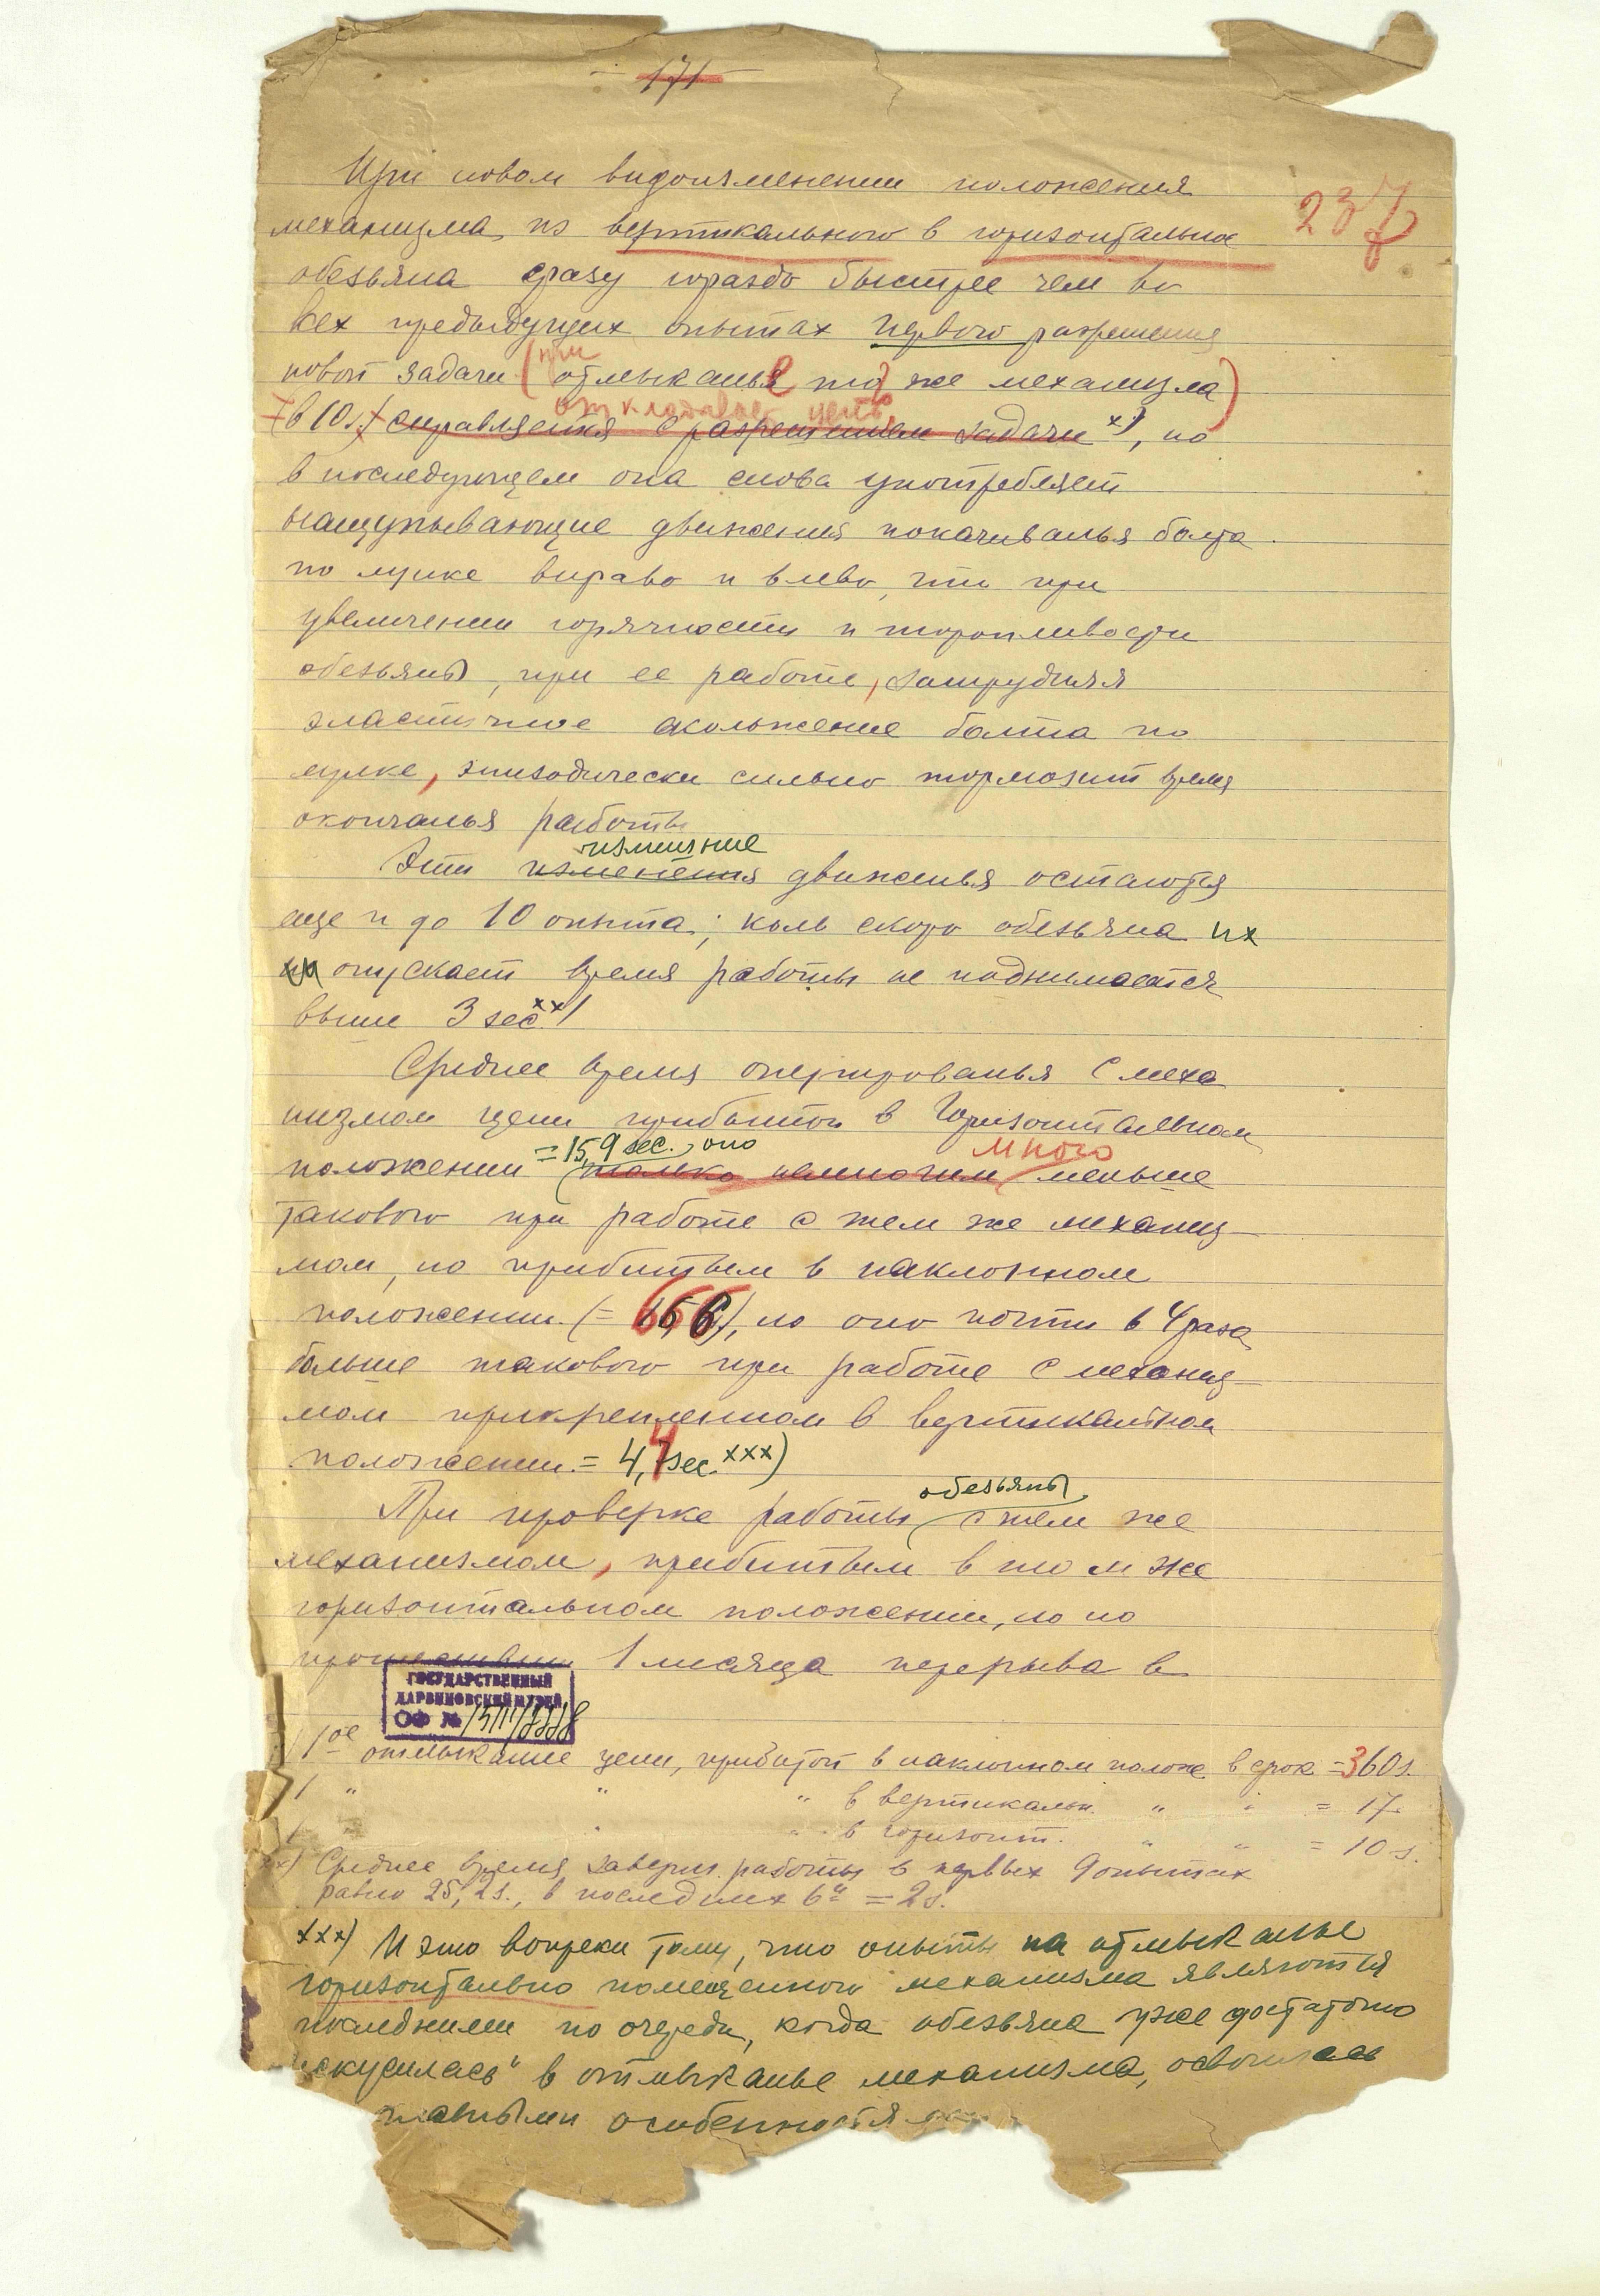 171
237
При новом видоизменении положения
механизма из вертикального в горизонтальное
обезьяна сразу гораздо быстрее чем во
всех предыдущих опытах первого разрешения
при
новой задачи (отмыканье того же механизма)
откладывает цепь
(в 10 s.) справляется с разрешением задачи x), но
в последующем она снова употребляет
нащупывающие движения покачиванья болта
по лунке вправо и влево, что при
увеличении горячности и торопливости
обезьяны, при ее работе, затрудняя
эластичное скольжение болта по
лунке, эпизодически сильно тормозит время
окончанья работы
излишние
Эти изменения движенья остаются
еще и до 10 опыта; коль скоро обезьяна их
опускает время работы не поднимается
выше 3 sec. xx)
Среднее время оперированья с меха
низмом цепи прибитой в горизонтальном
=15,9 sec., оно много
положении (только немногим) меньше
такового при работе с тем же механиз-
мом, но прибитым в наклонном
положении (= 66), но оно почти в 4 раза
больше такового при работе с механиз-
мом прикрепленном в вертикальном
положении = 4,4 sec. xxx)
обезьяны
При проверке работы с тем же
механизмом, прибитым в том же
горизонтальном положении, но по
прошествии 1 месяца перерыва в
ГОСУДАРСТВЕННЫЙ
ДАРВИНОВСКИЙ МУЗЕЙ
ОФ №
1ое отмыкание цепи, прибитой в наклонном полож. в срок = 360 s.
1 " " " в вертикальн. " " = 17
1 " " " в горизонт. " " = 10 s.
xx) Среднее время заверш. работы в первых 9 опытах
равно 25,2 s., в последних 6и = 2 s.
xxx) И это вопреки тому, что опыты на отмыканье
горизонтально помещенного механизма являются
последними по очереди, когда обезьяна уже достаточно
искусилась" в отмыканье механизма, освоилась
особенностя